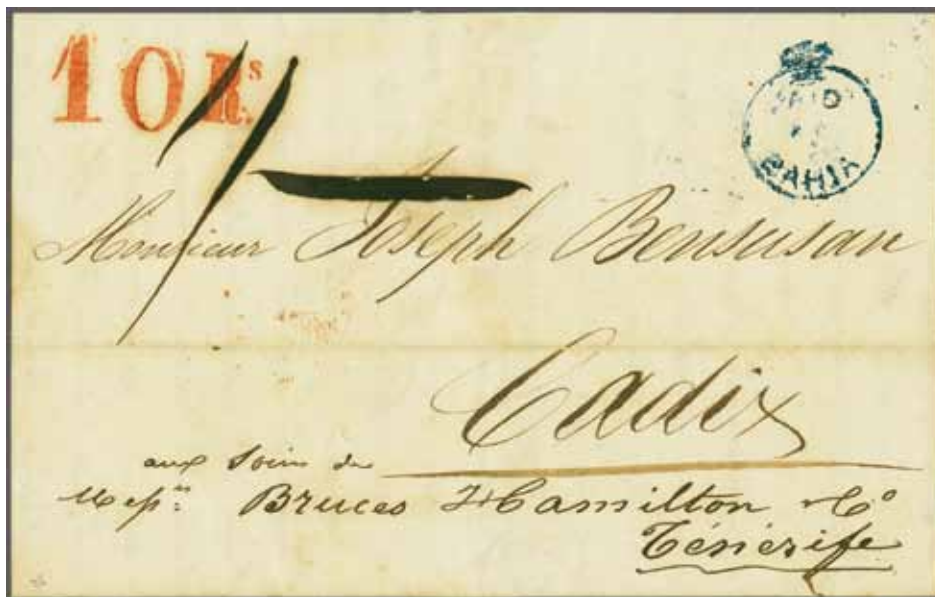 10 Rs.
PAID
BAHIA
1/-
Monsieur Joseph Bensusan
Cadix
aux soins de
Messrs: Bruces Hamilton & Co
Ténérife